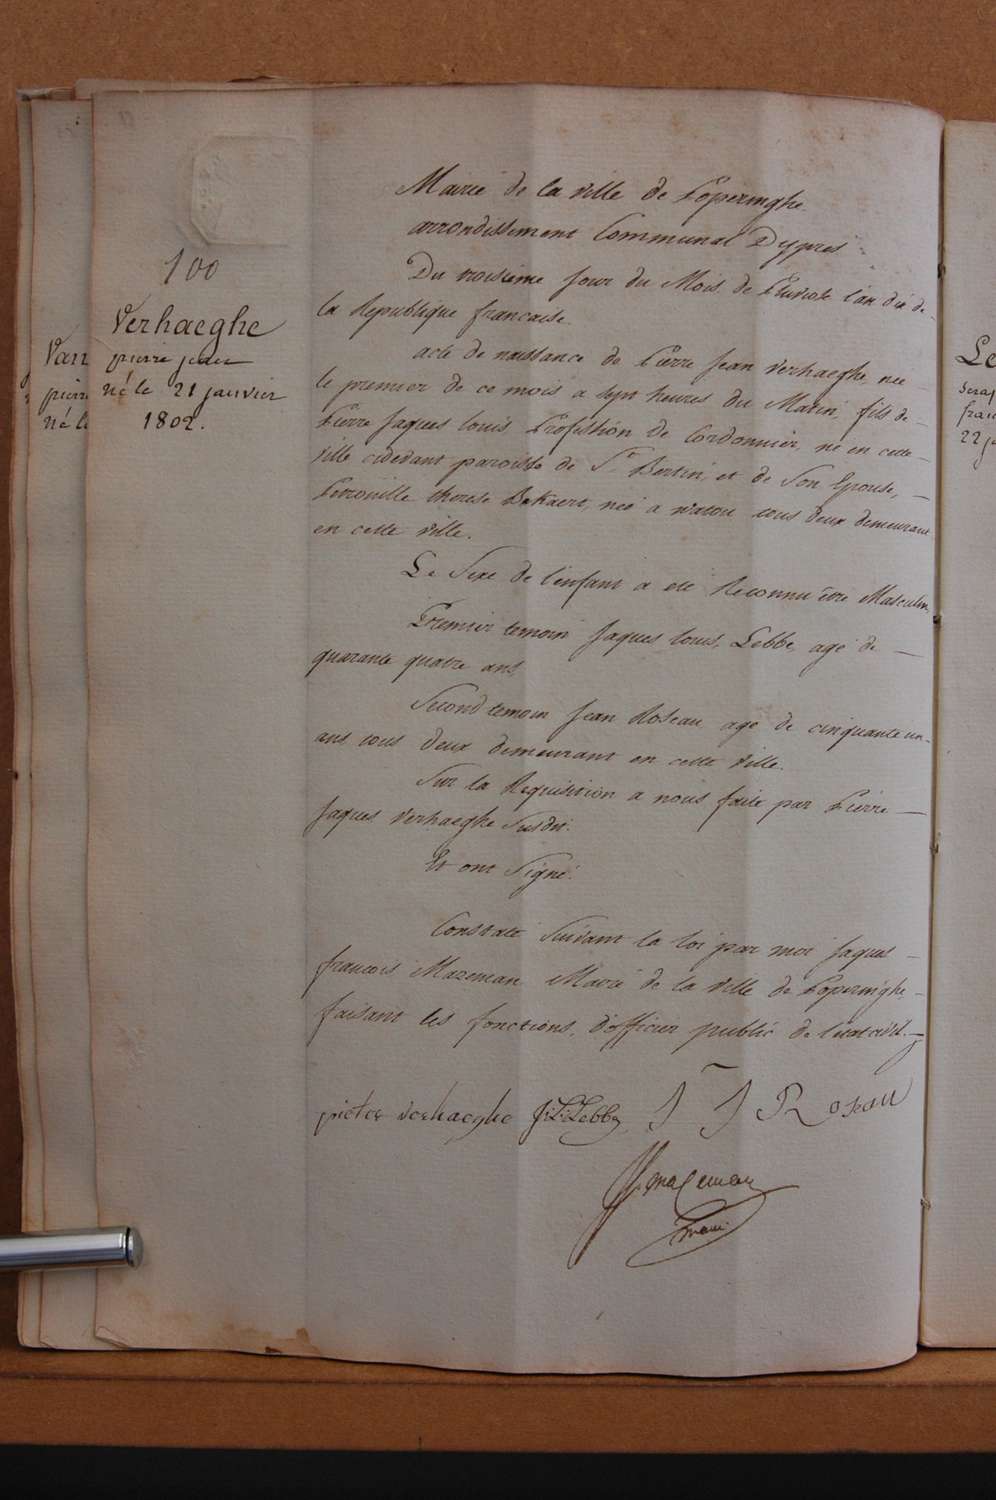 100
Verhaeghe
pierre jean
né le 21 janvier
1802.
Mairie de la ville de Poperinghe
arrondissement Communal Dypres
Du troisieme Jour du Mois de Pluviose l'an dix de
la Republique francaise
acte de naissance de Pierre Jean Verhaeghe nee
le premier de ce mois a sept heures du Matin, fils de
Pierre Jaques Louis Profession de Cordonnier, né en cette
ville cidevant paroisse de St Bertin, et de Son Epouse,
Petronille therese Bekaert, neé a watou tous deux demeurant
en cette ville.
Le Sexe de l'enfant a eté Reconnu être Masculin,
Premier temoin Jaques Louis Lebbe, agé de
quarante quatre ans,
Second temoin Jean Roseau agé de cinquante un
ans tous deux demeurant en cette ville.
Sur la Requisition a nous faite par Pierre
Jaques Verhaeghe Susdit.
Et ont Signé.
Constaté Suivant la loi par moi Jaques
francois Mazeman Maire de la ville de Poperinghe,
faisant les fonctions, d'officier public de l'état civil.
pieter verhaeghe J: L: Lebbe J J Roseau
mazeman
maire
Van
pierre
né le
Le
fran
22 j